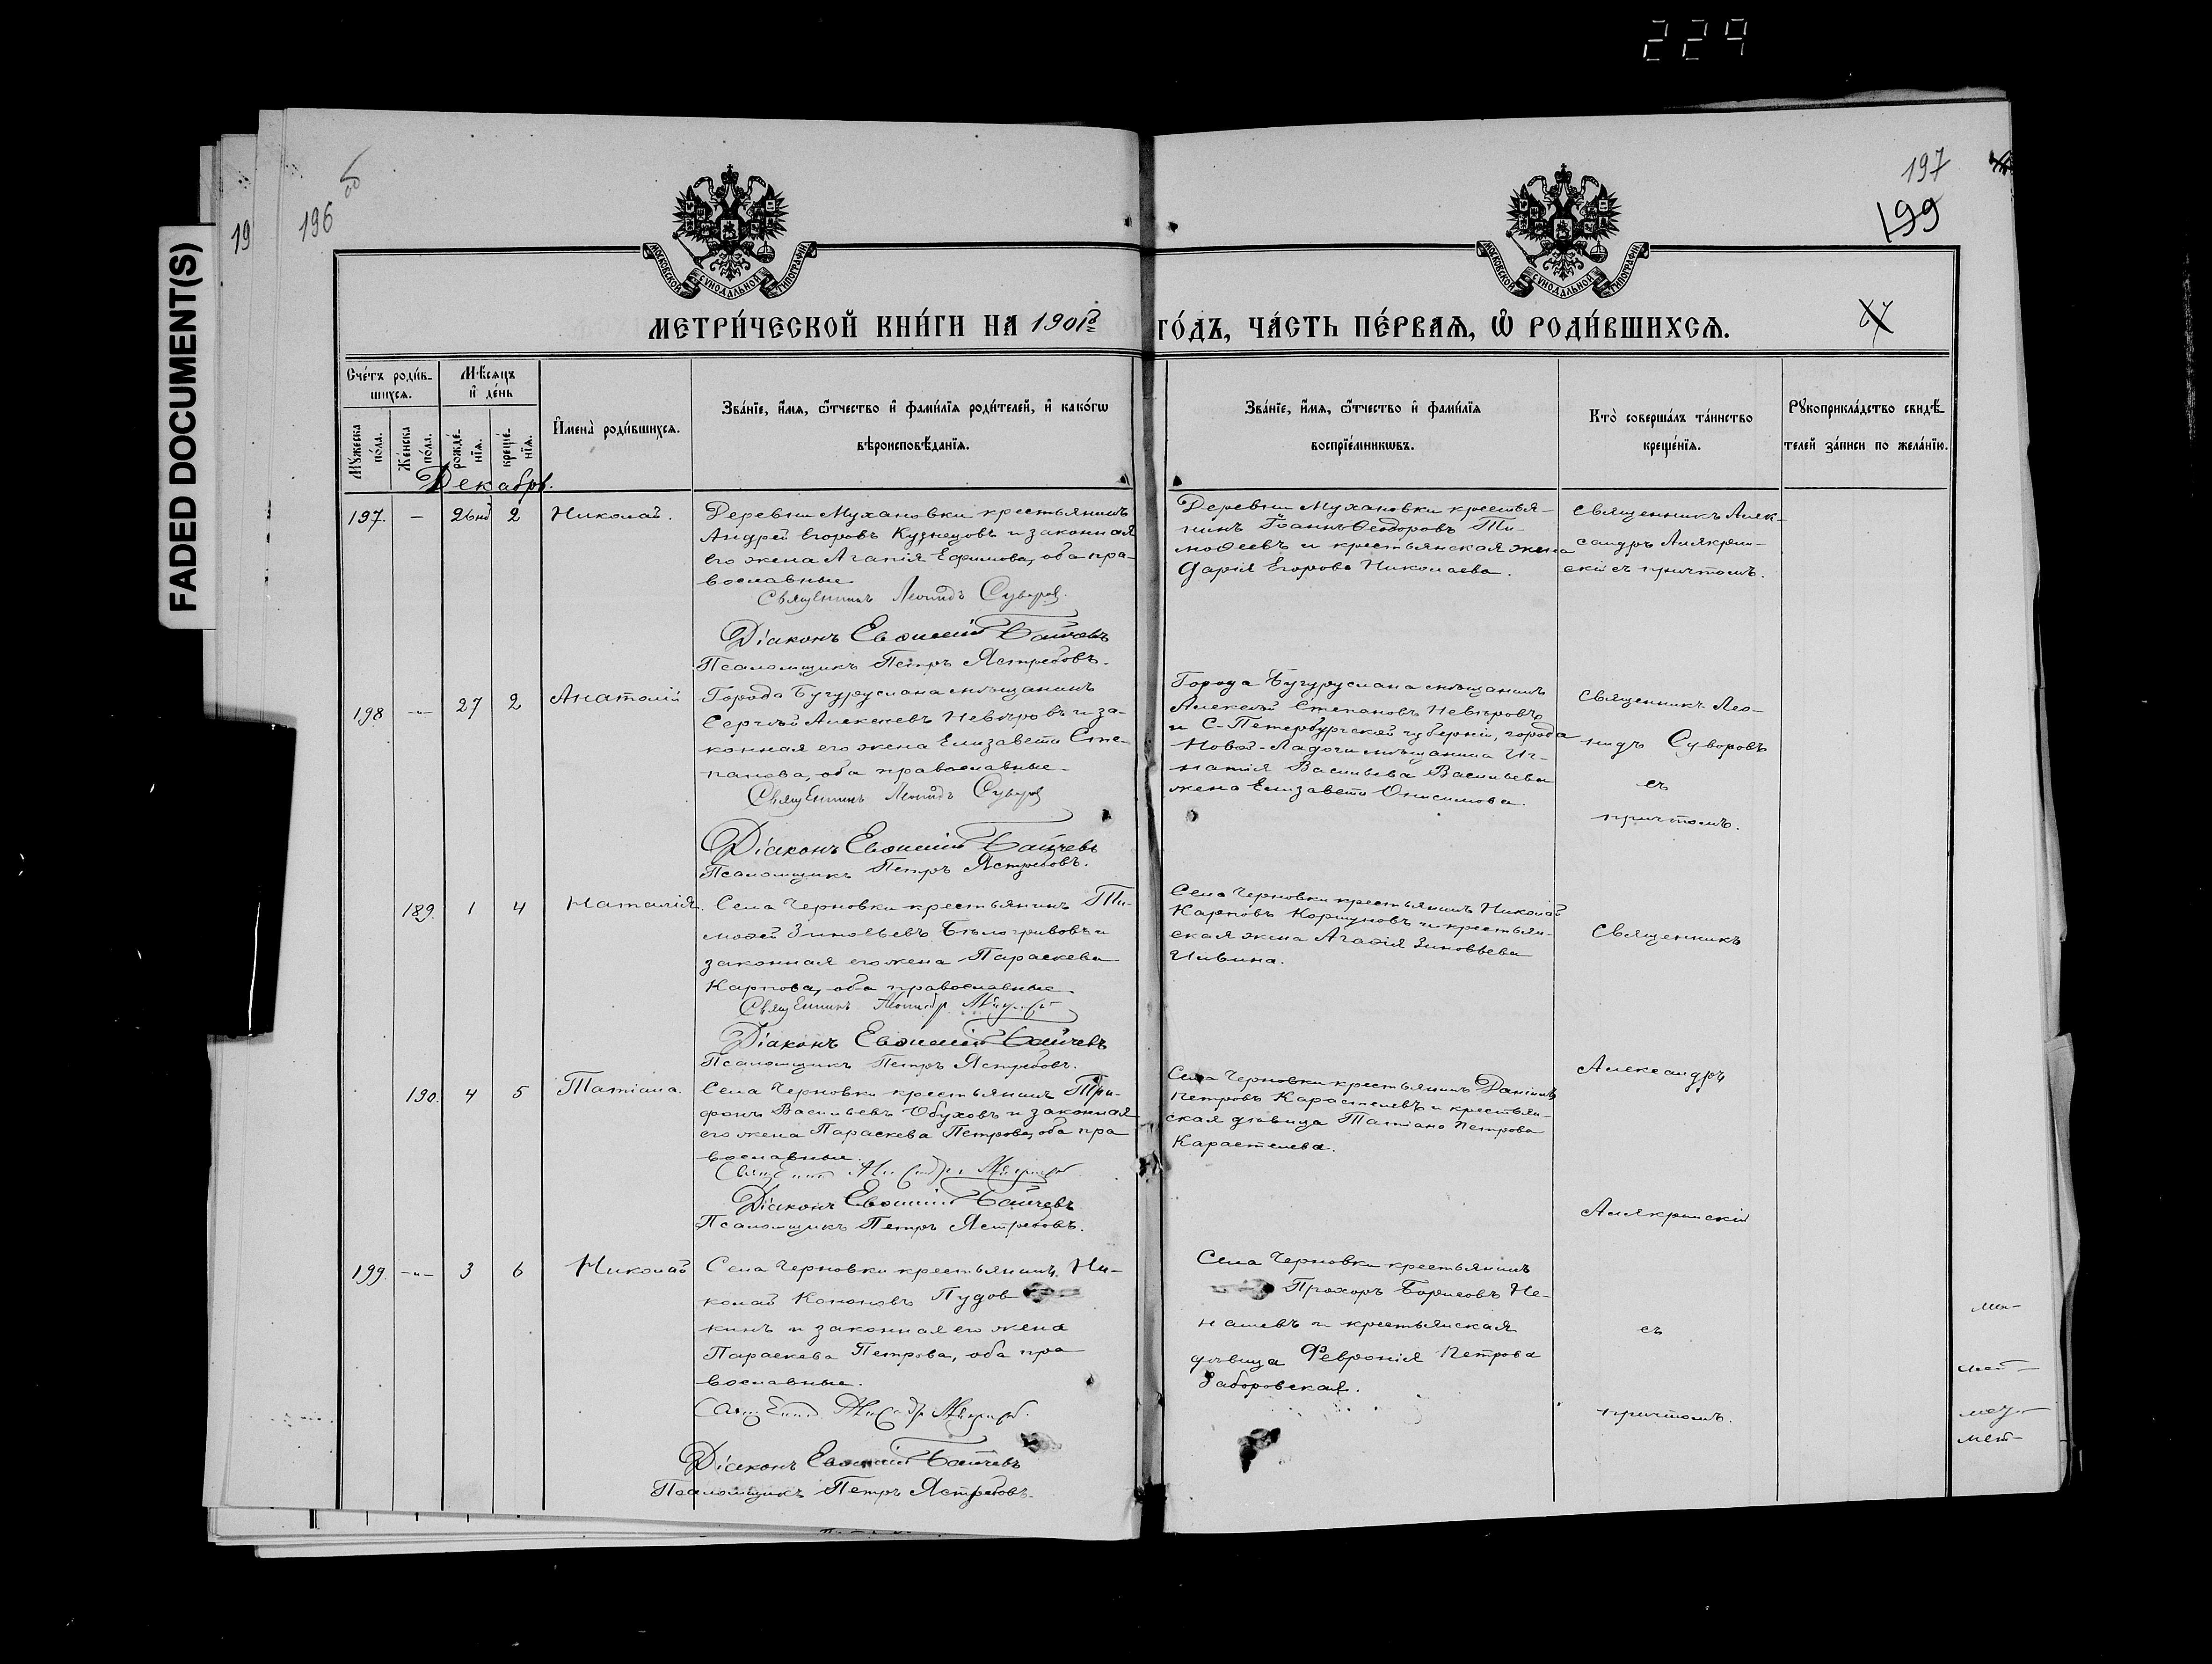 229
FADED DOCUMENT(S)
19
196
об
197
199
МОСКОВСКОЙ СѴНОДАЛЬНОЙ ТИПОГРАФІИ
МОСКОВСКОЙ СѴНОДАЛЬНОЙ ТИПОГРАФІИ
МЕТРИ́ЧЕСКОЙ КНИ́ГИ НА 1901й ГО́ДЪ, ЧА́СТЬ ПЕ́РВАѦ, Ѡ҆ РОДИ́ВШИХСѦ.
Сче́тъ роди́в-
шихсѧ.
Мѣ́сѧцъ
и҆ де́нь
Мꙋ́жеска по́ла.
Же́нска по́ла.
рожде́-нїѧ.
креще́-нїѧ.
И҆мена̀ роди́вшихсѧ.
Зва́нїе, и҆́мѧ, ѻ҆́тчество и҆ фами́лїѧ роди́телей, и҆ како́гѡ
вѣроисповѣ́данїѧ.
Зва́нїе, и҆́мѧ, ѻ҆́тчество и҆ фами́лїѧ
воспрїе́мникѡвъ.
Кто̀ соверша́лъ та́инство
креще́нїѧ.
Рꙋкоприкла́дство свидѣ́-
телей за́писи по жела́нїю.
Декабрь.
197. — 26 2 Николай.
Деревни Мухановки крестьянинъ
Андрей Егоровъ Кузнецовъ и законная
его жена Агапія Ефимова, оба пра-
вославные
Священникъ Леонидъ Суворовъ
Діаконъ Евѳимій
Псаломщикъ Петръ Ястребовъ.
Деревни Мухановки крестья-
нинъ Іоаннъ Ѳеодоровъ Ти-
моѳеевъ и крестьянская жена
Дарія Егорова Николаева.
Священникъ Алек-
сандръ Алякрин-
скій съ причтомъ.
198 -"- 27 2 Анатолій
Города Бугуруслана мѣщанинъ
Сергѣй Алексѣевъ Невѣровъ и за-
конная его жена Елизавета Сте-
панова, оба православные
Священникъ Леонидъ Суворовъ
Діаконъ Евѳимій
Псаломщикъ Петръ Ястребовъ.
Города Бугуруслана мѣщанинъ
Алексѣй Степановъ Невѣровъ
и С-Петербургской губерніи, города
Новой-Ладоги мѣщанина Иг-
натія Васильева Васильева
жена Елизавета Онисимова.
Священникъ Лео-
нидъ Суворовъ
съ
причтомъ.
189. 1 4 Наталія.
Села Черновки крестьянинъ Ти-
моѳей Зиновьевъ Бѣлогривовъ и
законная его жена Параскева
Карпова, оба православные
Священникъ
Діаконъ Евѳимій
Псаломщикъ Петръ Ястребовъ.
Села Черновки крестьянинъ Николай
Карповъ Коршуновъ и крестьян-
ская жена Агаѳія Зиновьева
Ильина.
Священникъ
190. 4 5 Татіана.
Села Черновки крестьянинъ Три-
фонъ Васильевъ Обуховъ и законная
его жена Параскева Петрова, оба пра
вославные.
Діаконъ Евѳимій
Псаломщикъ Петръ Ястребовъ.
Села Черновки крестьянинъ Даніилъ
Петровъ Карастелевъ и крестьян-
ская дѣвица Татіана Петрова
Карастелева.
Александръ
Алякринскій
199. -"- 3 6 Николай
Села Черновки крестьянинъ Ни-
колай Кононовъ Пудов
кинъ и законная его жена
Параскева Петрова, оба пра
вославные.
Діаконъ Евѳимій
Псаломщикъ Петръ Ястребовъ.
Села Черновки крестьянинъ
Прохоръ Борисовъ Не-
нашевъ и крестьянская
дѣвица Февронія Петрова
Заборовская.
съ
причтомъ.